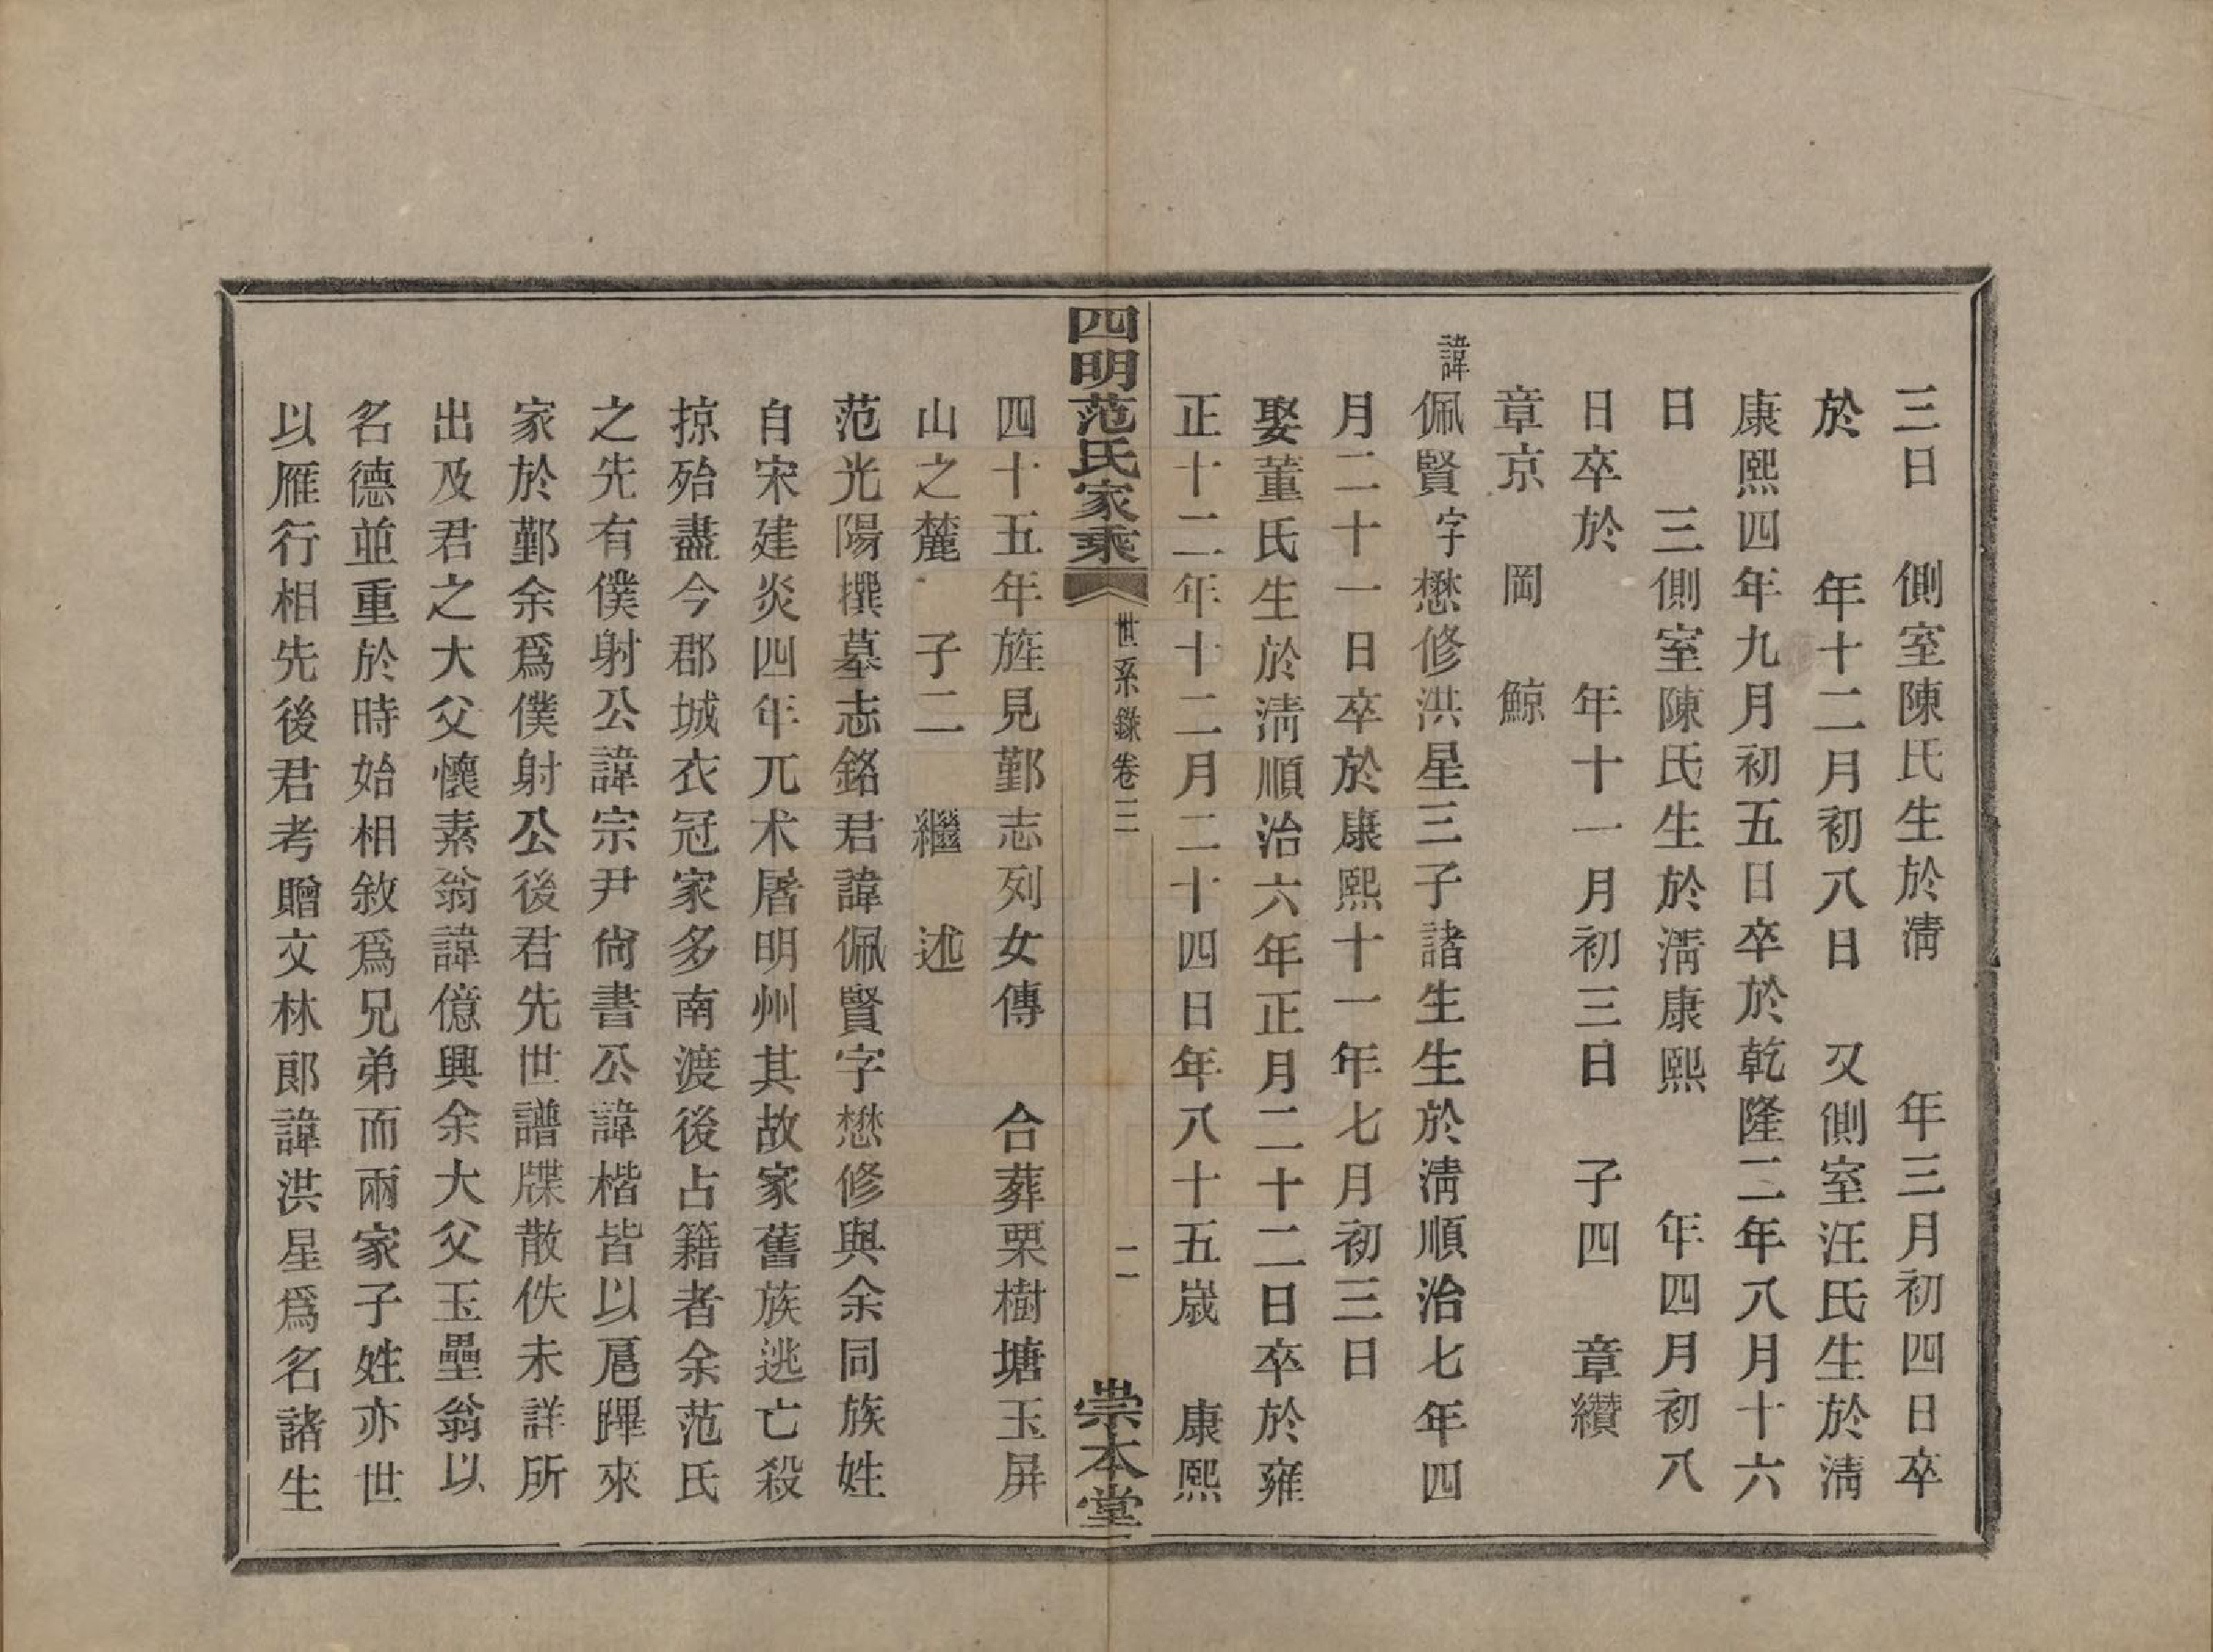 三日　側室陳氏生於淸　　年三月初四日卒
於　　年十二月初八日　又側室汪氏生於淸
康熙四年九月初五日卒於乾隆二年八月十六
日　三側室陳氏生於淸康熙　　年四月初八
日卒於　　年十一月初三日　子四　章纘
章京　岡　鯨
諱佩賢字懋修洪星三子諸生生於淸順治七年四
月二十一日卒於康熙十一年七月初三日
娶董氏生於淸順治六年正月二十二日卒於雍
正十二年十二月二十四日年八十五嵗　康熙
四明范氏家乘　世系錄卷三　二　崇本堂
四十五年旌見鄞志列女傳　合葬栗樹塘玉屏
山之麓　子二　繼　述
范光陽撰墓志銘君諱佩賢字懋修與余同族姓
自宋建炎四年兀术屠明州其故家舊族逃亡殺
掠殆盡今郡城衣冠家多南渡後占籍者余范氏
之先有僕射公諱宗尹尙書公諱楷皆以扈蹕來
家於鄞余爲僕射公後君先世譜牒散佚未詳所
出及君之大父懷素翁諱億興余大父玉壘翁以
名德並重於時始相敘爲兄弟而兩家子姓亦世
以雁行相先後君考贈文林郞諱洪星爲名諸生